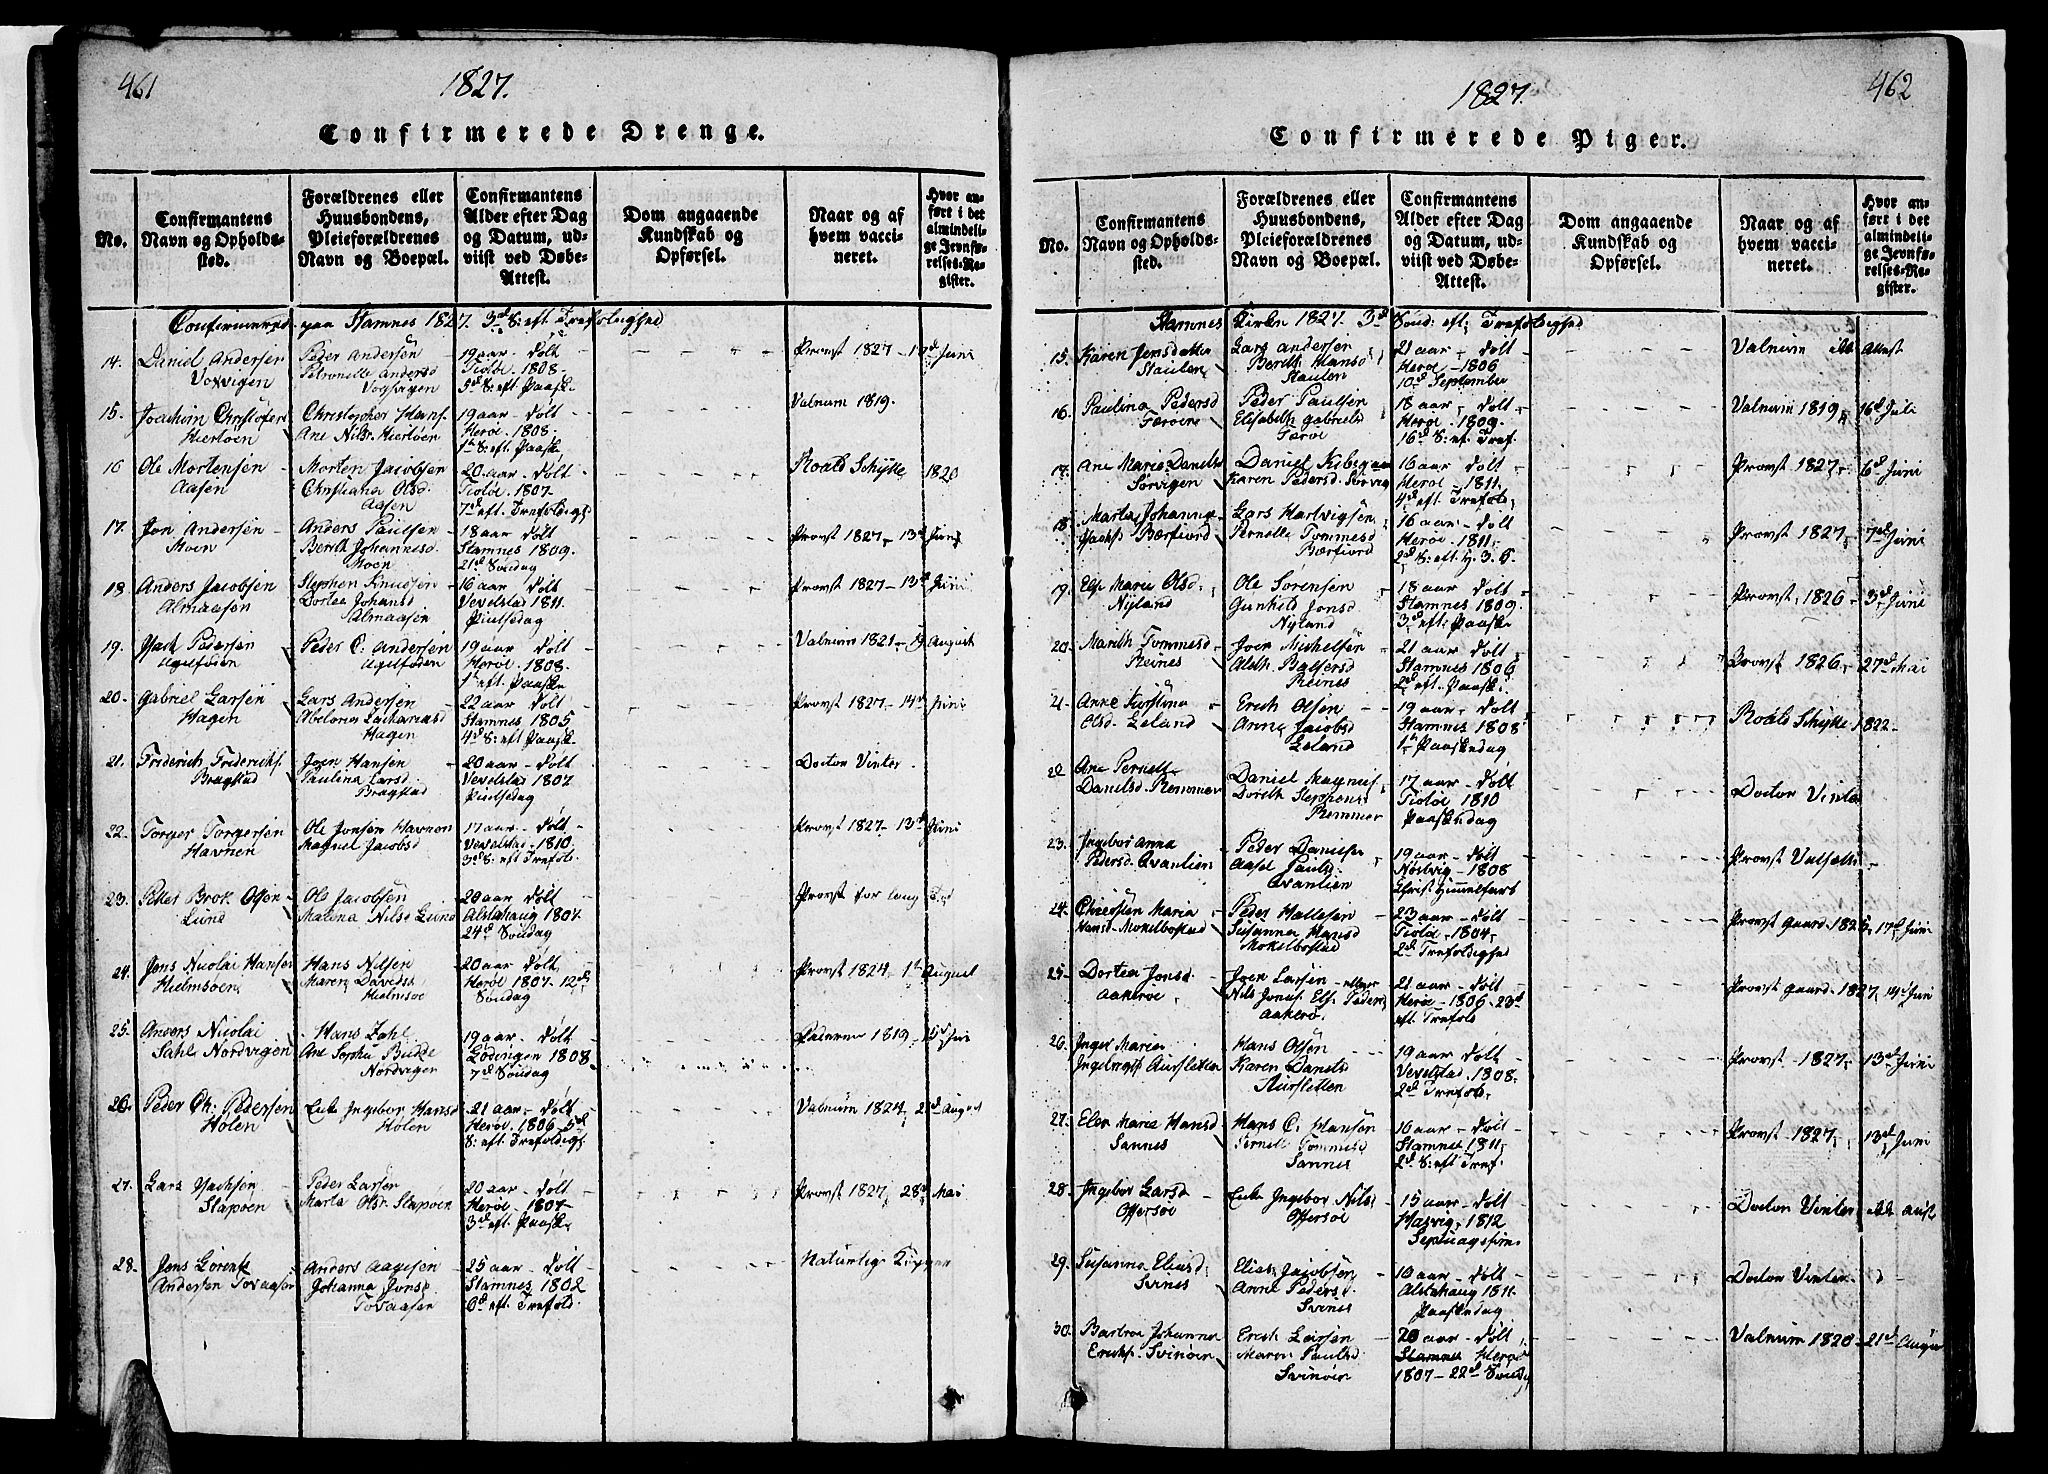 461
1827.
Confirmerede Drenge.
No.
Confirmantens Navn og Opholdssted.
Forældrenes eller Huusbondens, Pleieforældrenes Navn og Boepæl.
Confirmantens Alder efter Dag og Datum, udviist ved Døbe-Attest.
Dom angaaende Kundskab og Opførsel.
Naar og af hvem vaccineret.
Hvor anført i det almindelige Jevnførelses-Register.
Confirmerede paa Stamnes 1827. 3d S: eft Trefoldighed
14. Daniel Andersen Voxvigen
Peder Andersen
Petronelle Andersd
19 aar - Døbt
Tiøtøe. 1808.
5d S: eft Paaske
Provst 1827 - Juni
15. Joachim
Hiertøen
Christopher Hans.
Ane Nilsr. Hiertøen
19 aar - Døbt
Herøe. 1808.
1st S: eft Paaske
Valnum 1819.
16 Ole Mortensen
Aasen
Morten Jacobsen
Christiana Olsd.
Aasen
20 aar - Døbt
Tiøtøe. 1807.
7d eft. Trefoldigh
Roald Schytte 1820
17. Jon Andersen
Moen
Anders Paulsen
Berith Johannesd
Moen
18 aar - Døbt
Stamnes 1809.
21d Søndag
Provst 1827 - 13d Juni
18 Anders Jacobsen
Almaasen
Stephen Knudsen
Dortea Johansd
Almaasen
16 aar - Døbt
Vevelstad 1811.
Pintsedag
Provst 1827 - 13d Juni
19. Pedersen
Agelføden
Peder C. Andersen
Agelføden
19 aar Døbt
Herøe. 1808.
1st eft. Paaske
Valnum 1821 - 19 August
20. Gabriel Larsen
Hagen
Lars Andersen
Abelona Zachariasd
Hagen
22 aar - Døbt
Stamnes 1805
4d S: eft Paask
Provst 1827 - 14d Juni
21. Friderich Friderichs.
Bragstad
Joen Hansen
Paulina Larsd.
Bragstad
20 aar - Døbt
Vevelstad 1807
Pintsedag
Doctor Vinter
22. Torger Torgersen
Havnen
Ole Jonsen Havnen
Magnel Jacobsd
17 aar. Døbt
Vevelstad - 1810.
3d S: eft Trefold.
Provst 1827 - 13d Juni
23. Petter Brok Olsen
Lund
Ole Jacobsen
Malena Nilsd Lund
20 aar - Døbt
Alstahaug 1807.
24d Søndag
Provst for lang Tid
24. Jens Nicolai Hansen
Hielmsøen
Hans Nilsen
Maren Davidsd
Hielmsøe
20 aar - Døbt
Herøe 1807 - 12d
Søndag
Provst 1824 - 1st August
25. Anders Nicolai
Sahl Nordvigen
Hans Zahl
Ane Sophia Budde
Nordvigen
19 aar - Døbt
Lødingen 1808
7d Søndag
Pedersen 1819 - 5d Juni
26. Peder Ch: Pedersen
Holen
Enke Ingebor Hansd
Holen
21 aar - Døbt
Herøe. 1806 - 5d
S: eft Trefoldigh
Valnum 1824 - 2d August
27. Lars
Slapøen
Peder Larsen
Marta Olsr. Slapøen
20 aar - Døbt
Herøe - 1807 -
3d eft. Paaske
Provst 1827 - 28d Mai
28. Jens Lorentz
Andersen Tovaasen
Anders Aagesen
Johanna Jonsd
Tovaasen
25 aar - Døbt
Stamnes 1802
6d eft. Trefold.
Naturlige Kopper
462
1827.
Confirmerede Piger.
No.
Confirmantens Navn og Opholdssted.
Forældrenes eller Huusbondens, Pleieforældrenes Navn og Boepæl.
Confirmantens Alder efter Dag og Datum, udviist ved Døbe-Attest.
Dom angaaende Kundskab og Opførsel.
Naar og af hvem vaccineret.
Hvor anført i det almindelige Jevnførelses-Register.
Stamnes Kirke 1827. 3d Sønd: eft: Trefoldighed
15. Karen Jensdatter
Staulen
Lars Andersen
Berith Hansd
Staulen
21 aar - Døbt
Herøe - 1806
10d September
Valnum Attest
16. Paulina Pedersd
Færøen
Peder Paulsen
Elisabeth Gabrielsd
Færøe
18 aar - Døbt
Herøe. 1809.
16d S: ef. Tref.
Valnum 1819 16d Juli
17. Ane Marie Danielsd
Sørvigen
Daniel
Karen Pedersd. Sørvig
16 aar Døbt
Herøe - 1811.
4d eft. Trefold
Provst 1827 - 6d Juni
18. Marta Johanna
Bærfiord
Lars Hartvigsen
Pernelle Tommesd
Bærfiord
16 aar - Døbt
Herøe - 1811.
2d S: eft. h. 3. K
Provst 1827 - 7d Juni
19. Else Marie Olsd.
Nyland
Ole Sørensen
Gunhild Jonsd
Nyland
18 aar - Døbt
Stamnes 1809.
3d eft. Paaske
Provst 1826 - 3d Juni
20. Marith Tommesd
Reines
Joen Michelsen
Alsth. Balsersd
Reines
21 aar - Døbt
Stamnes 1806
2d eft. Paaske
Provst 1826 - 27d Mai
21. Anne Kirstina
Olsd. Leland
Erich Olsen
Anna Jacobsd
Leland
19 aar - Døbt
Stamnes 1808
1st Paaskedag
Roald Schytte 1822 -
22 Ane Pernelle
Danielsd Remmen
Daniel Magnus.
Dorith Stephensd
Remmen
17 aar - Døbt
Tiøtøe 1810
Paaskedag
Doctor Vinter
23. Ingebor Anna
Pedersd. Qvanlien
Peder Danielsen
Aasel Paulsd.
Qvanlien
19 aar - Døbt
Nordvig - 1808
Christi Himmelfart
Provst
24. Christen Maria
Hansd. Mokelbostad
Peder Hallesen
Susanna Hansd
Mokelbostad
23 aar - Døbt
Tiøtøe - 1804 -
2d Trefoldighed
Provst gaard 1825 - 17d Juni
25 - Dortea Jonsd.
Aakerøe
Joen Larsen - eller
Nils Jonsd. Els. Peders
Aakerø.
21 aar - Døbt
Herøe - 1806 - 23d
eft. Trefold
Provst gaard - 1827 14d Juni
26. Inger Maria
Ingebrigtsd Aursletten
Hans Olsen
Karen Danielsd
Aursletten
19 aar - Døbt
Vevelstad. 1808.
2d Trefold.
Provst 1827 - 13d Juni
27. Elen Marie Hansd
Sannes
Hans C. Hansen
Pernille Tommesd
Sannes
16 aar - Døbt
Stamnes 1811
2d S: eft Tref.
Provst 1827 - 13d Juni
28. Ingebor Larsd
Offersøe
Enke Ingebor Nilsd
Offersøe
15 aar - Døbt
Hasvig - 1812
Septuagesima
Doctor Vinter
29. Susanna Eliasd.
Svines
Elias Jacobsen
Anne Pedersd.
Svines
16 aar - Døbt
Alstahaug 1811.
Paaskedag
Doctor Vinter
30. Bartroe Johanna
Erichs. Svinøen
Erich Larsen
Maren Paulsd
Svinøen
20 aar - Døbt
Stamnes Herøe
1807 - 22d Søndag
Valnum 1820 - 21d August